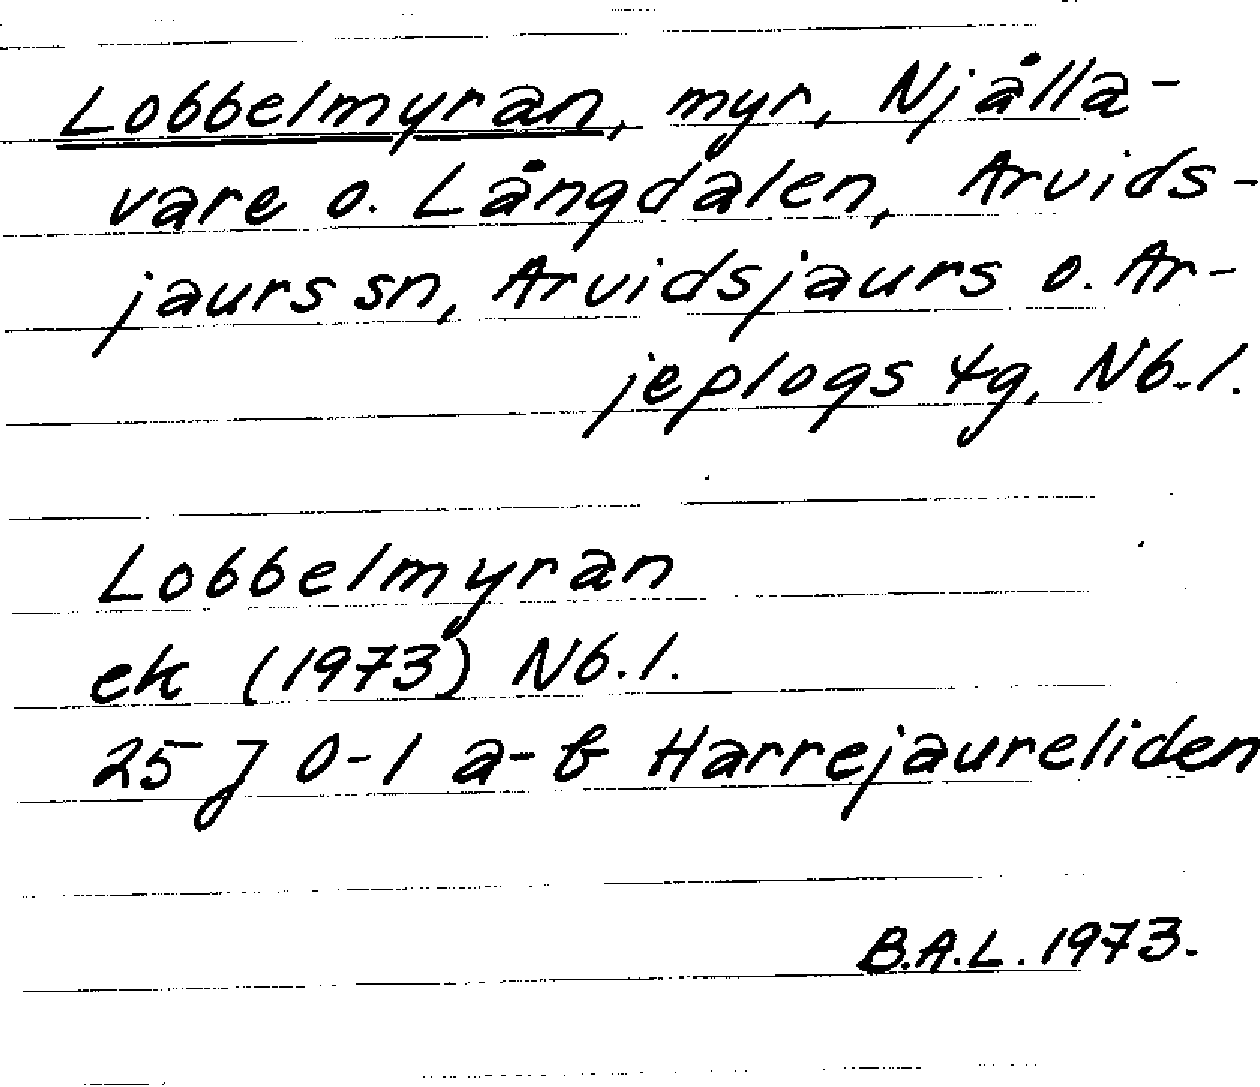 Lobbelmyran, myr, Njålla-
vare o. Långdalen, Arvids-
jaurs sn, Arvidsjaurs o. Ar-
jeplogs tg, Nb.l.
Lobbelmyran
ek (1973) Nb.l.
25 J 0-1 a-b Harrejaureliden
B.A.L. 1973.